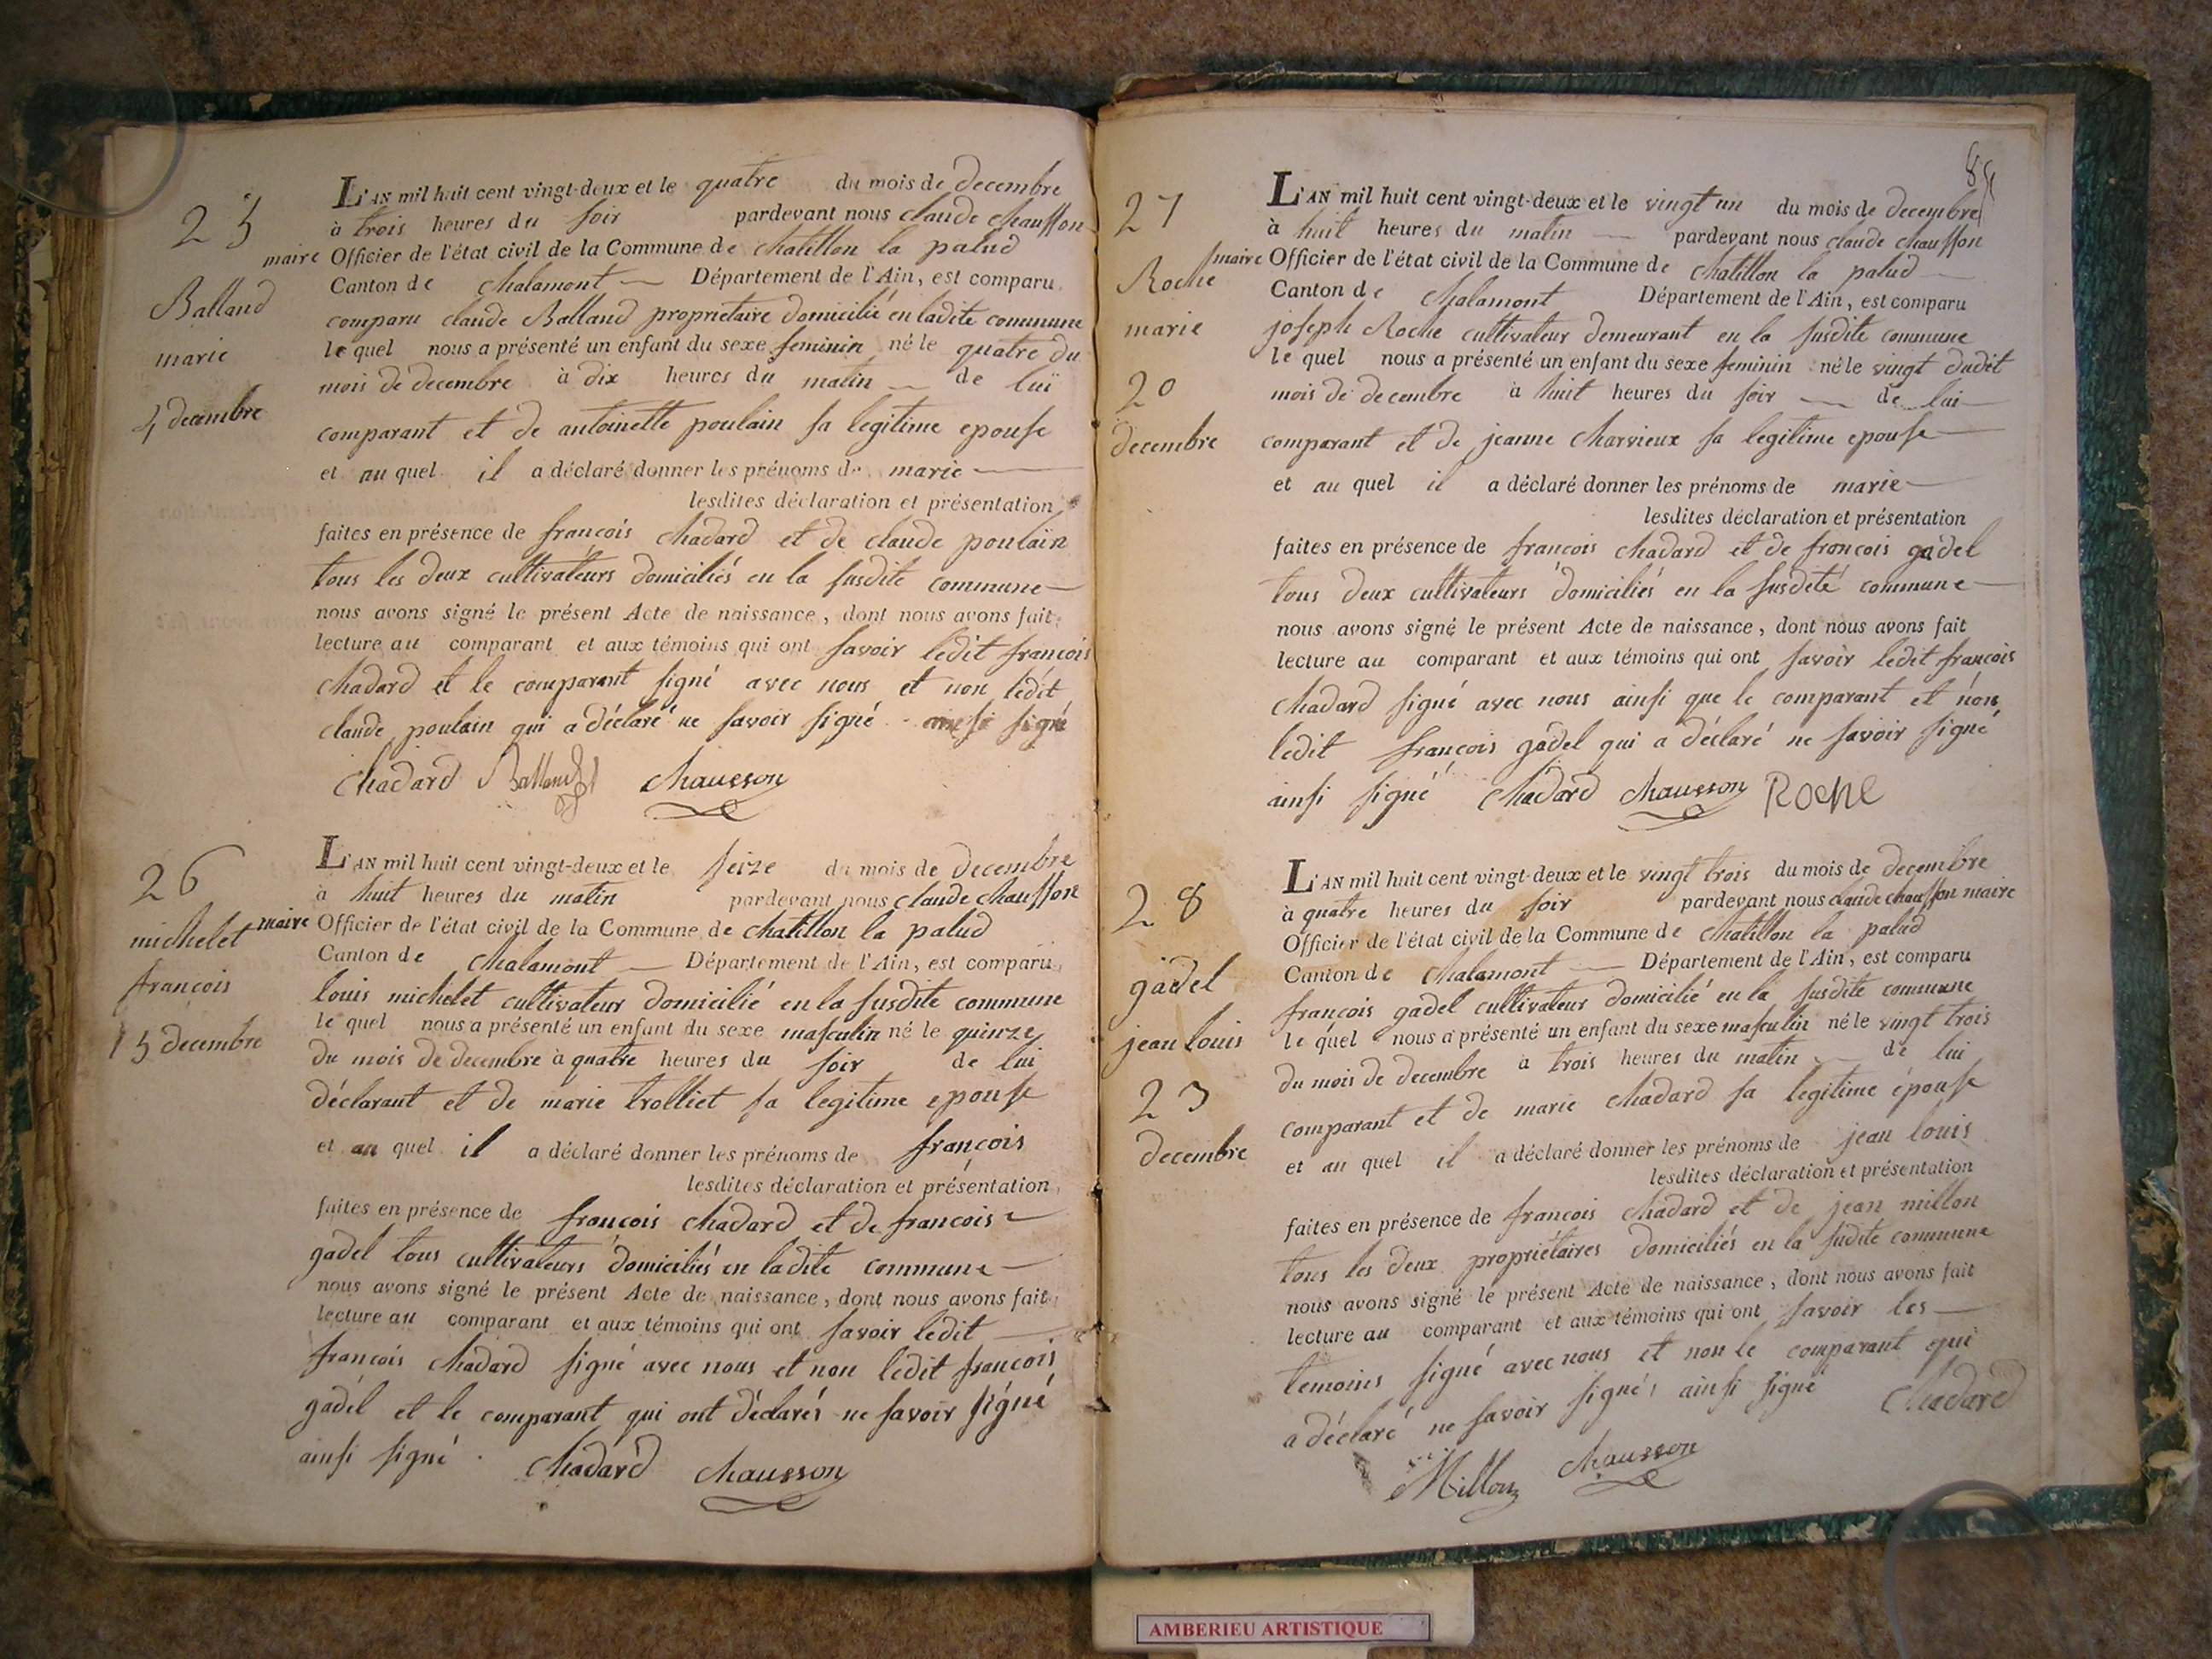 25
Balland
marie
4 decembre
L'AN mil huit cent vingt-deux et le quatre du mois de decembre
à trois heures du soir pardevant nous claude chausson
maire Officier de l'état civil de la Commune de chatillon la palud
Canton de chalamont Département de l'Ain, est comparu
comparu claude Balland proprietaire domicilié en ladite commune
le quel nous a présenté un enfant du sexe feminin né le quatre du
mois de decembre à dix heures du matin de lui
comparant et de antoinette poulain sa legitime epouse
et au quel il a déclaré donner les prénoms de marie
lesdites déclaration et présentation
faites en présence de francois chadard et de claude poulain
tous les deux cultivateurs domiciliés en la susdite commune
nous avons signé le présent Acte de naissance, dont nous avons fait
lecture au comparant et aux témoins qui ont savoir ledit francois
chadard et le comparant signé avec nous et non ledit
claude poulain qui a déclaré ne savoir signé ainsi signé
chadard Balland chausson
26
michelet
francois
15 decembre
L'AN mil huit cent vingt-deux et le seize du mois de decembre
à huit heures du matin pardevant nous claude chausson
maire Officier de l'état civil de la Commune de chatillon la palud
Canton de chalamont Département de l'Ain, est comparu
louis michelet cultivateur domicilié en la susdite commune
le quel nous a présenté un enfant du sexe masculin né le quinze
du mois de decembre à quatre heures du soir de lui
déclarant et de marie trolliet sa legitime epouse
et au quel il a déclaré donner les prénoms de françois
lesdites déclaration et présentation
faites en présence de francois chadard et de francois
gadel tous cultivateurs domiciliés en ladite commune
nous avons signé le présent Acte de naissance, dont nous avons fait
lecture au comparant et aux témoins qui ont savoir ledit
francois chadard signé avec nous et non ledit francois
gadel et le comparant qui ont déclarés ne savoir signé
ainsi signé. chadard chausson
84
27
Roche
marie
20
decembre
L'AN mil huit cent vingt-deux et le vingt un du mois de decembre
à huit heures du matin pardevant nous claude chausson
maire Officier de l'état civil de la Commune de chatillon la palud
Canton de chalamont Département de l'Ain, est comparu
joseph Roche cultivateur demeurant en la susdite commune
le quel nous a présenté un enfant du sexe feminin né le vingt dudit
mois de decembre à huit heures du soir de lui
comparant et de jeanne charvieux sa legitime epouse
et au quel il a déclaré donner les prénoms de marie
lesdites déclaration et présentation
faites en présence de francois chadard et de francois gadel
tous deux cultivateurs domiciliés en la susdité commune
nous avons signé le présent Acte de naissance, dont nous avons fait
lecture au comparant et aux témoins qui ont savoir ledit francois
chadard signé avec nous ainsi que le comparant et non
ledit françois gadel qui a déclaré ne savoir signé
ainsi signé chadard chausson Roche
28
gadel
jean louis
23
decembre
L'AN mil huit cent vingt-deux et le vingt trois du mois de decembre
à quatre heures du soir pardevant nous claude chausson maire
Officier de l'état civil de la Commune de chatillon la palud
Canton de chalamont Département de l'Ain, est comparu
françois gadel cultivateur domicilié en la susdite commune
le quel nous a présenté un enfant du sexe masculin né le vingt trois
du mois de decembre à trois heures du matin de lui
comparant et de marie chadard sa legitime épouse
et au quel il a déclaré donner les prénoms de jean louis
lesdites déclaration et présentation
faites en présence de francois chadard et de jean millon
tous les deux proprietaires domiciliés en la sudite commune
nous avons signé le présent Acte de naissance, dont nous avons fait
lecture au comparant et aux témoins qui ont savoir les
temoins signé avec nous et non le comparant qui
a déclaré ne savoir signé, ainsi signé chadard
Millon chausson
AMBERIEU ARTISTIQUE